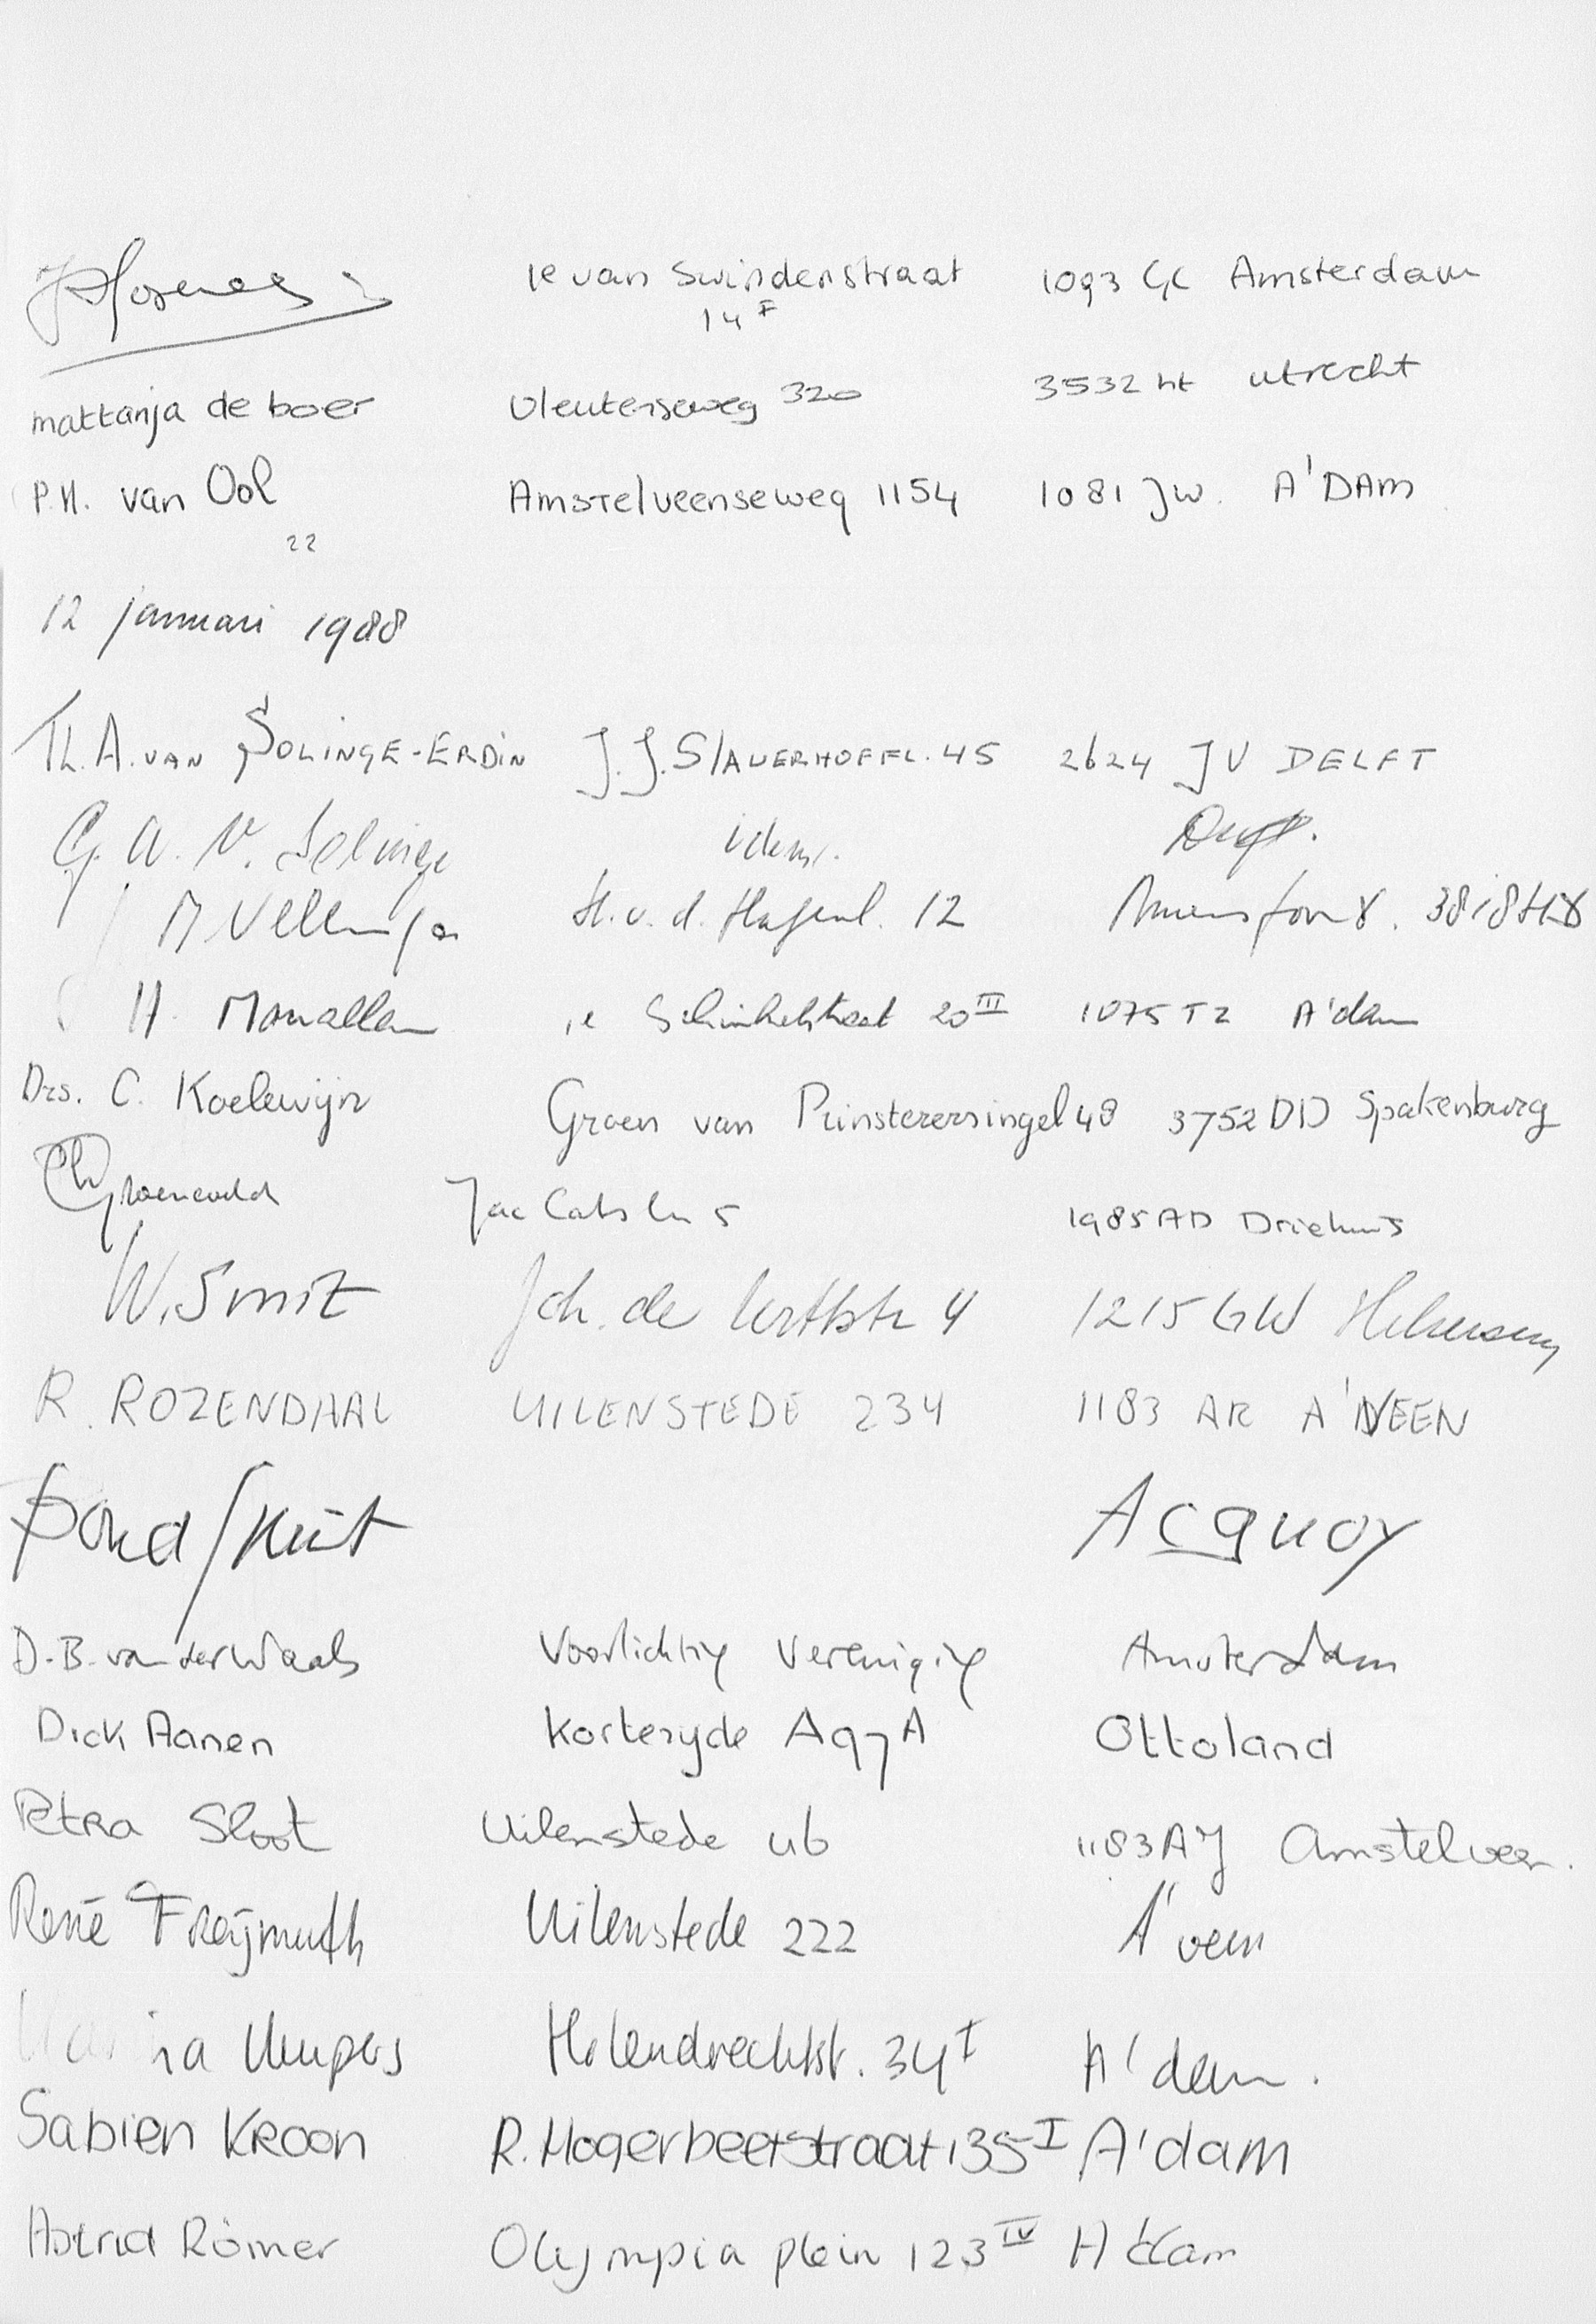 1e van Swindenstraat 1093 GC Amsterdam
14 I
mattanja de boer Vleutenseweg 320 3532 ht utrecht
P.H. van Ool Amstelveenseweg 1154 1081 JW. A'DAM
22
12 januari 1988
Th. A. van Solinge-Erdin J.J. Slauerhoffl. 45 2624 JV DELFT
G. A. V. Solinge idem. Delft.
M Vellinga H. v. d. 12 Amersfoort. 3818
H. 1e Schinkelstraat 20 III 1075 TZ A'dam
Drs. C. Koelewijn Groen van Prinsterersingel 48 3752 DD Spakenburg
Groeneveld Jac Catsln 5 1985 AD Driehuis
W. Smit Joh. de 4 1215 GW Hilversum
R. ROZENDAAL UILENSTEDE 234 1183 AR A'VEEN
Acquoy
D.B. van der Waals Voorlichting Vereniging Amsterdam
Dick Aanen Kortezyde A 97 A Ottoland
Petra Sloot Uilenstede 46 1183 AJ Amstelveen.
René Freijmuth Uilenstede 222 A'veen
Holendrechtstr. 34 I A'dam.
Sabien Kroon R. Hogerbeetstraat 135 I A'dam
Astrid Römer Olympia plein 123 IV A'dam